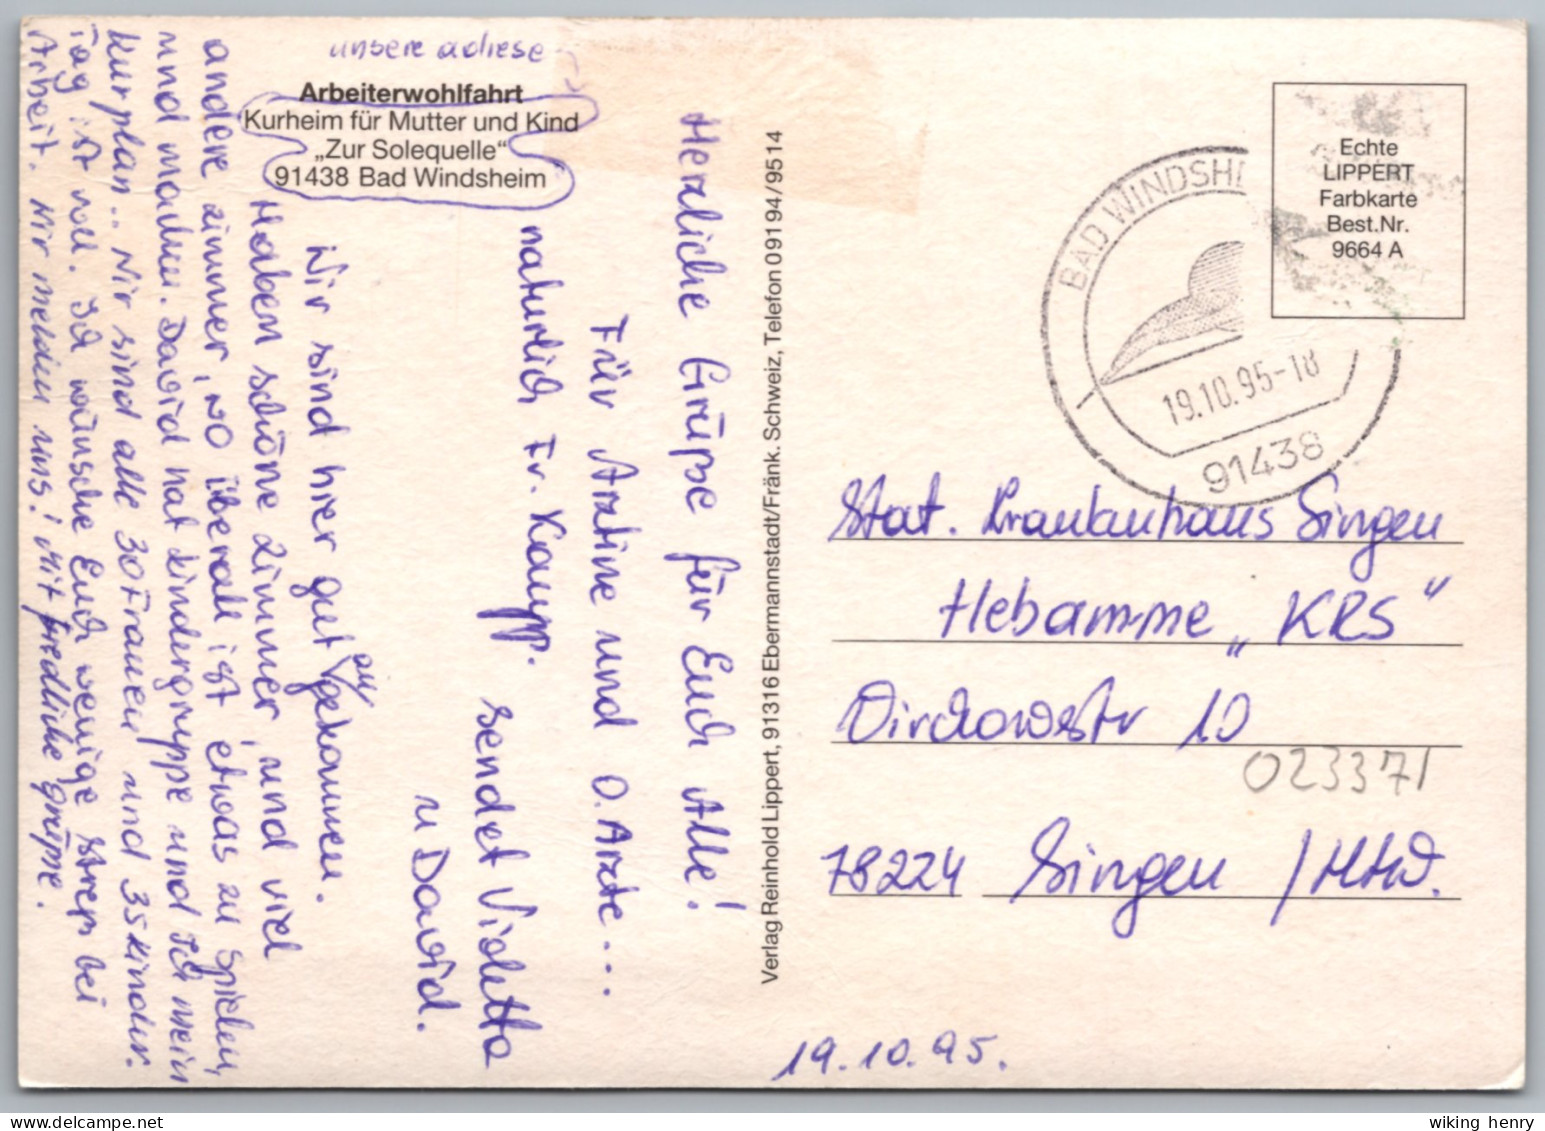 unsere adrese
Arbeiterwohlfahrt
Kurheim für Mutter und Kind
„Zur Solequelle“
91438 Bad Windsheim
Herzliche Grüpse für Euch Alle!
Für Arztine und O. Arzte...
naturlich Fr. Kampp.
sendet Violetta
u David.
Wir sind hier gut an gekommen.
Haben schöne zimmer, und viel
andere zimmer, wo überall ist etwas zu spielen,
und malen. David hat kindergruppe und Ich mein
Kurplan.. Wir sind alle 30 Frauen und 35 kinder.
Tag ist voll. Ich wünsche Euch wenige stres bei
Arbeit. Wir melden uns! Mit fredliche grüpse.
Verlag Reinhold Lippert, 91316 Ebermannstadt/Fränk. Schweiz, Telefon 09194/9514
Echte
LIPPERT
Farbkarte
Best.Nr.
9664 A
BAD WINDSHE
19.10.95-18
91438
Stat. Krankenhaus Singen
Hebamme „KRS“
Virchowstr 10
023371
78224 Singen /Htw.
19.10.95.
wiking henry